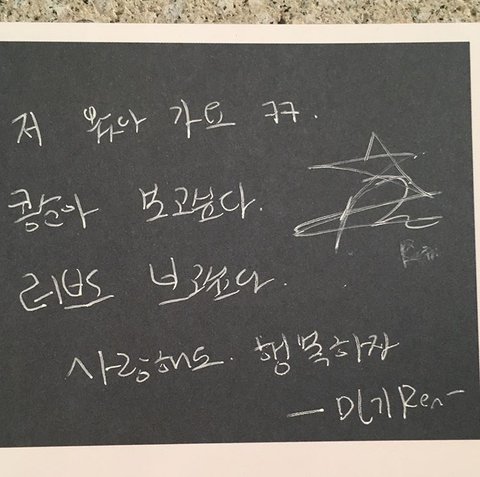 저 가요 ㅋㅋ.
보고싶다.
러브도 보고싶다.
사랑해도. 행복하자
- 민기Ren -